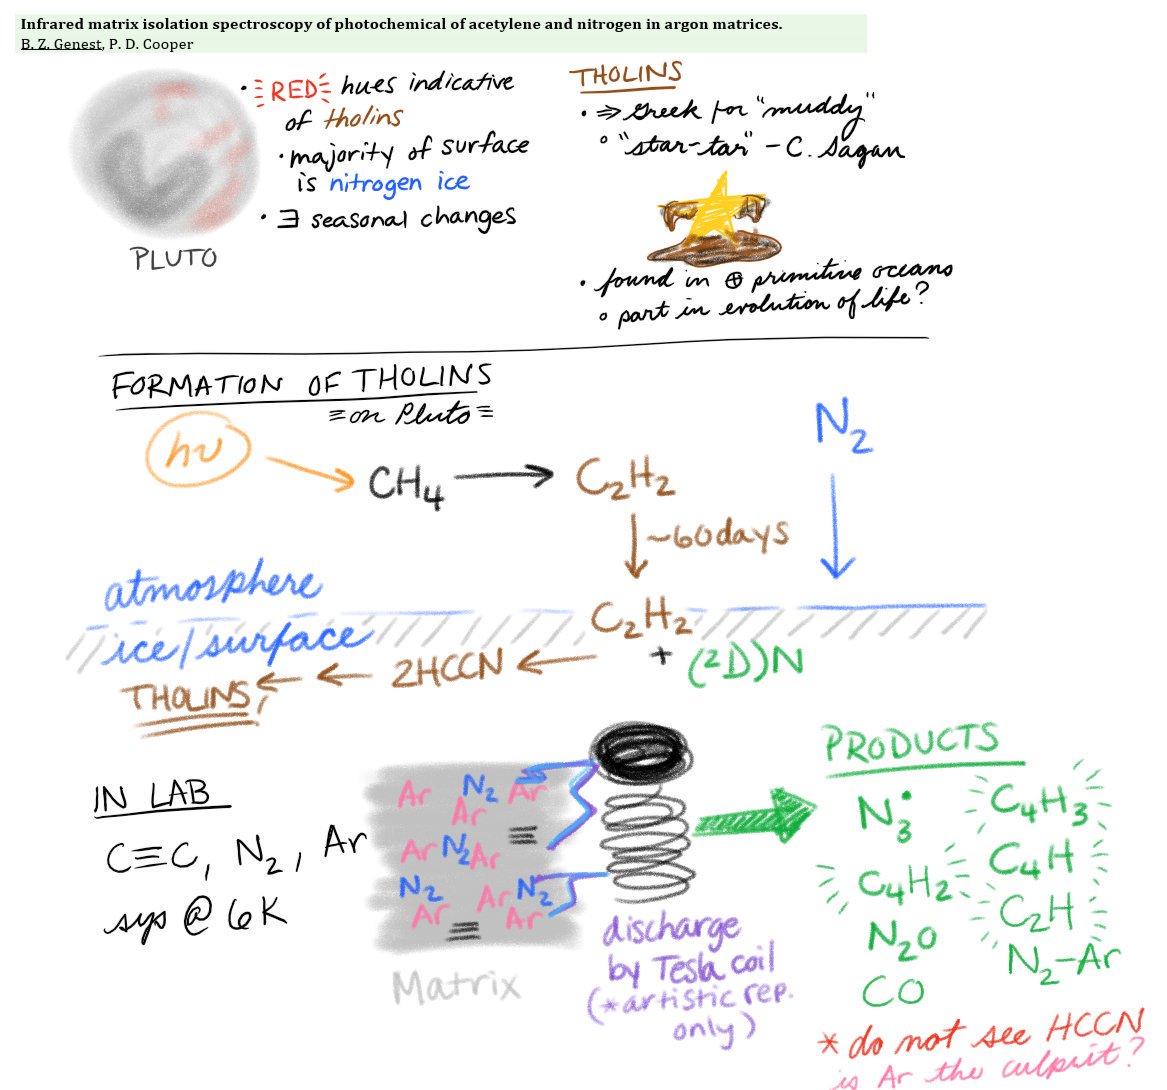 Infrared matrix isolation spectroscopy of photochemical of acetylene and nitrogen in argon matrices.
B. Z. Genest, P. D. Cooper
PLUTO
• RED hues indicative
of tholins
• majority of surface
is nitrogen ice
• ∃ seasonal changes
THOLINS
• ⇒ Greek for "muddy"
∘ "star-tar" - C. Sagan
• found in ⊕ primitive oceans
∘ part in evolution of life?
FORMATION OF THOLINS
≡ on Pluto ≡
hν → CH4 → C2H2
N2
~60days
atmosphere
ice/surface
C2H2
+ (2D)N
THOLINS ← ← 2HCCN ←
IN LAB
C≡C, N2, Ar
sys @ 6K
Ar N2 Ar
Ar
≡
Ar N2 Ar
N2 Ar N2
Ar Ar
≡
Matrix
discharge
by Tesla coil
(*artistic rep.
only)
PRODUCTS
N3•
C4H2
N2O
CO
C4H3
C4H
C2H
N2-Ar
* do not see HCCN
is Ar the culprit?